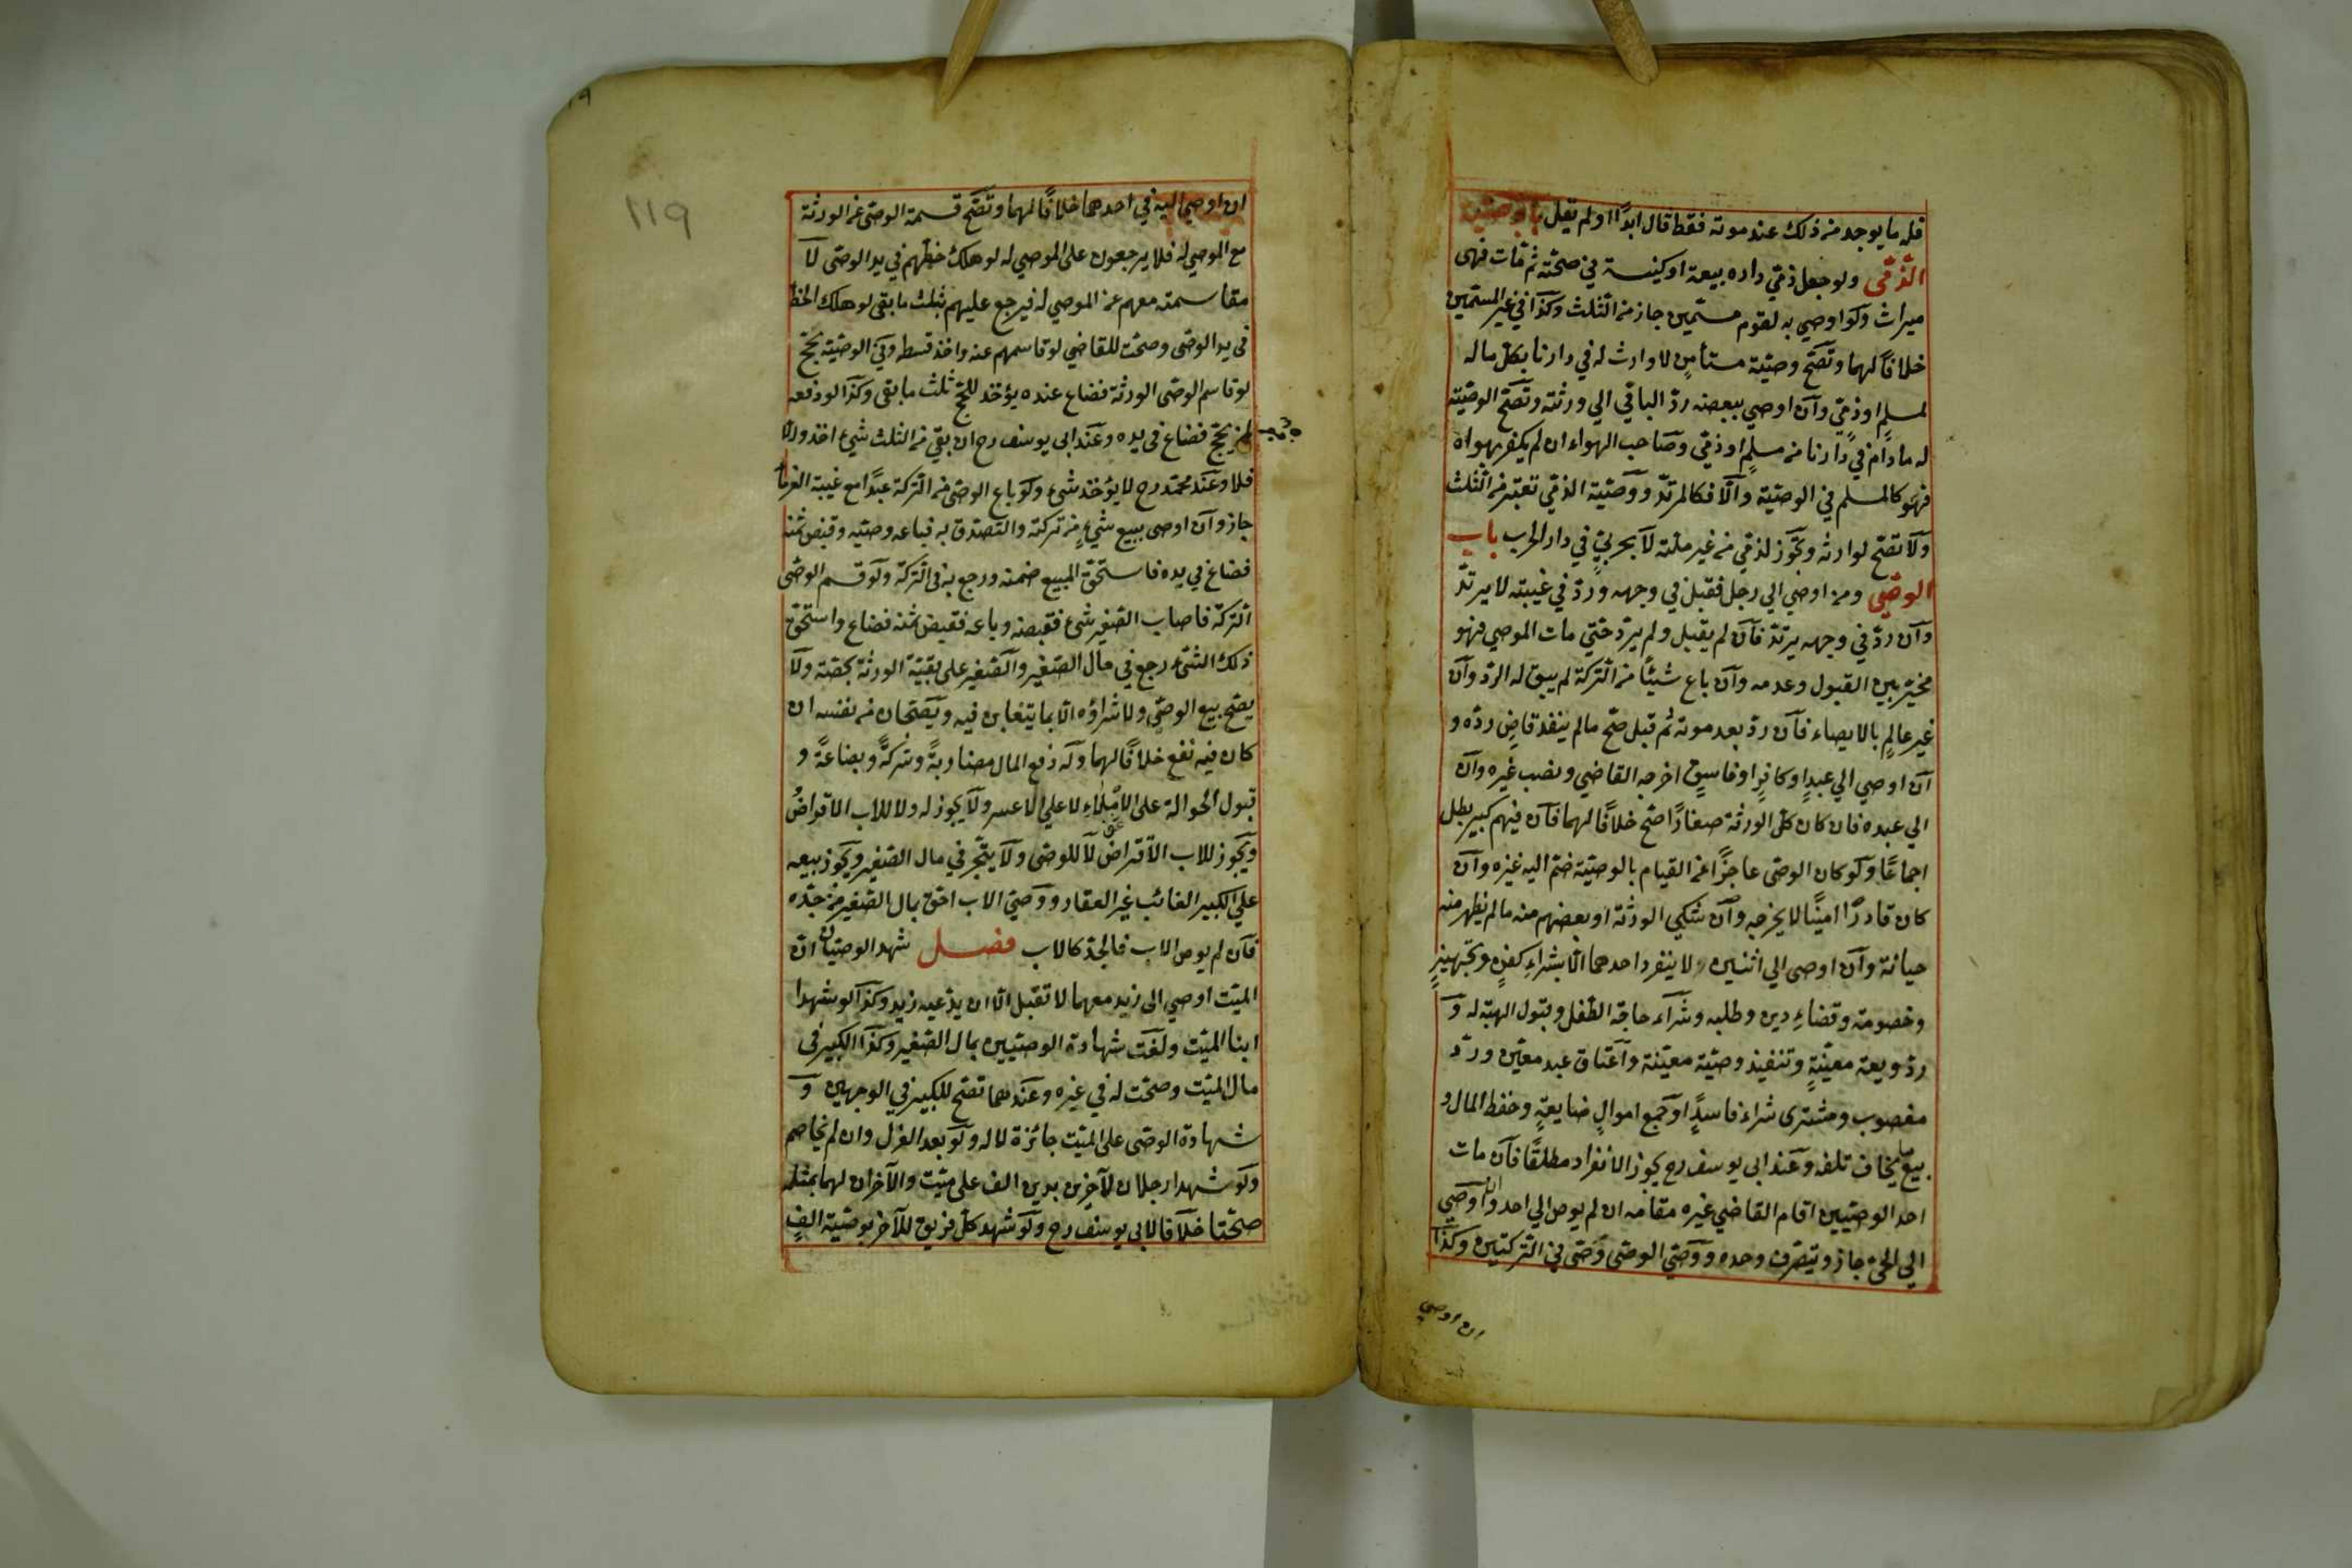 فله ما يوجد من ذلك عند موته فقط قال ابدًا اولم يقل باب وصية
الذمّى ولو جعل ذمّي داره بيعة او كنيسة في صحّته ثم مات فهى
ميراث ولو اوصي به لقوم مسمّين جاز من الثّلث وكذا في غير المسمّين
خلافًا لهما وتصّح وصيّة مستأمنٍ لا وارث له في دارنا بكلّ ماله
لمسلمٍ او ذمّي وان اوصي ببعضه ردّ الباقي الي ورثته وتصّح الوصيّة
له مادام في دارنا من مسلمٍ او ذمّي وصاحب الهواء ان لم يكفر بهواه
فهو كالمسلم في الوصيّة والّا فكالمرتدّ ووصيّة الذمّي تعتبر من الثّلث
ولا تصّح لوارثه وتجوز لذمّي من غير ملّته لا بحربيّ في دار الحرب باب
الوصّي ومن اوصي الي رجل فقبل في وجهه وردّ في غيبته لا يرتدّ
وان ردّ في وجهه يرتدّ فان لم يقبل ولم يردّ حتّي مات الموصي فهو
مخيّر بين القبول وعدمه وان باع شيئًا من التّركة لم يبق له الردّ وان
غير عالمٍ بالايصاء فان ردّ بعد موته ثم قبل صّح مالم ينفد قاضٍ ردّه و
ان اوصي الي عبدٍ او كافرٍ او فاسقٍ اخرجه القاضي ونصب غيره وان
الي عبده فان كان كلّ الورثة صغارًا صّح خلافًا لهما فان فيهم كبير بطل
اجماعًا ولو كان الوصّى عاجزًا عن القيام بالوصيّة ضّم اليه غيره وان
كان قادرًا امينًا لا يخرجه وان شكي الورثة او بعضهم منه مالم يظهر منه
خيانة وان اوصى الي اثنين لا ينفرد احدهما الّا بشراءِ كفنٍ وتجهيزٍ
وخصومة وقضاءِ دين وطلبه وشراء حاجة الطّفل وقبول الهبة له و
ردّ وديعة معيّنةٍ وتنفيذ وصيّة معيّنة واعتاق عبد معيّن وردّ
مغصوب ومشترى شراء فاسدٍ او جمع اموالٍ ضايعةٍ وحفظ المال و
بيع ما يخاف تلفه وعند ابى يوسف رح يجوز الانفراد مطلقًا فان مات
احد الوصيّين اقام القاضي غيره مقامه ان لم يوص الي احد وان اوصي
الي الحّي جاز ويتصّرف وحده ووصّي الوصّى وصّى في التّركتين وكذا
ان اوصي
ان اوصي اليه في احدهما خلافًا لهما وتصّح قسمة الوصّى عن الورثة
مع الموصي له فلا يرجعون على الموصي له لو هلك حظّهم في يد الوصّى لا
مقاسمته معهم عن الموصي له فيرجع عليهم بثلث ما بقى لو هلك الحظّ
في يد الوصّى وصحّت للقاضي لو قاسمهم عنه واخذ قسطه وفى الوصيّة بحّج
لو قاسم الوصّى الورثة فضاع عنده يؤخذ للحّج ثلث ما بقى وكذا لو دفعه
لمن يحّج فضاع في يده وعند ابى يوسف رح ان بقي من الثلث شئ اخذ والّا
فلا وعند محمّد رح لا يؤخذ شئ ولو باع الوصّى من التّركة عبدًا مع غيبة الغرماء
جاز وان اوصى ببيع شئٍ من تركته والتّصدّق به فباعه وصّيه وقبض ثمنه
فضاع في يده فاستحّق المبيع ضمنه ورجع به في التّركة ولو قسم الوصّى
التّركة فاصاب الصّغير شئ فقبضه وباعه فقبض ثمنه فضاع واستحّق
ذلك الشئ رجع في مال الصّغير والصّغير على بقيّة الورثة بحصّته ولا
يصّح بيع الوصّي ولا شراؤه الّا بما يتغابن فيه ويصّحان من نفسه ان
كان فيه نفع خلافًا لهما وله دفع المال مضاربةً وشركةً وبضاعةً و
قبول الحوالة على الاملاءِ لا علي الاعسر ولا يجوز له ولا للاب الاقراضُ
ويجوز للاب الاقتراض لا للوصّى ولا يتّجر في مال الصّغير ويجوز بيعه
علي الكبير الغائب غير العقار ووصّي الاب احّق بمال الصّغير من جدّه
فان لم يوص الاب فالجدّ كالاب فصل شهد الوصيّان انّ
الميّت اوصي الى زيد معهما لا تقبل الّا ان يدّعيه زيد وكذا لو شهدا
ابنا الميّت ولغت شهادة الوصيّين بمال الصّغير وكذا الكبير في
مال الميّت وصحّت له في غيره وعندهما تصّح للكبير في الوجهين و
شهادة الوصّى على الميّت جائزة لا له ولو بعد العزل وان لم يخاصم
ولو شهدا رجلان لآخرين بدين الف على ميّت والآخران لهما بمثله
صحّتا خلافًا لابى يوسف رح ولو شهد كلّ فريق للآخر بوصيّة الفٍ
١١٩